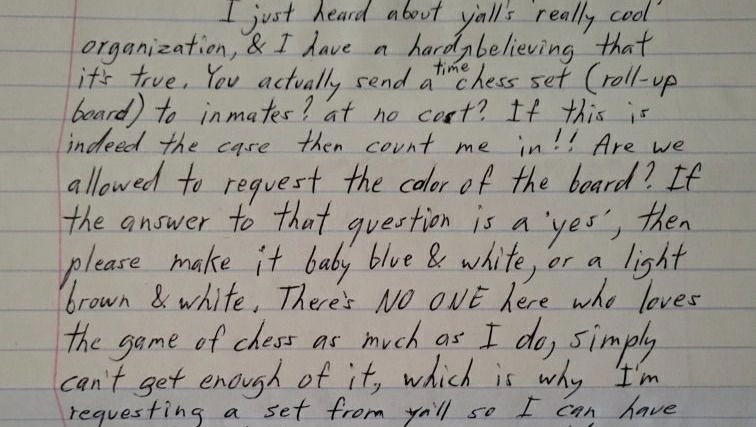 I just heard about y'all's really cool
organization, & I have a hard time believing that
it's true. You actually send a chess set (roll-up
board) to inmates? at no cost? If this is
indeed the case then count me in!! Are we
allowed to request the color of the board? If
the answer to that question is a 'yes', then
please make it baby blue & white, or a light
brown & white. There's NO ONE here who loves
the game of chess as much as I do, simply
can't get enough of it, which is why I'm
requesting a set from ya'll so I can have